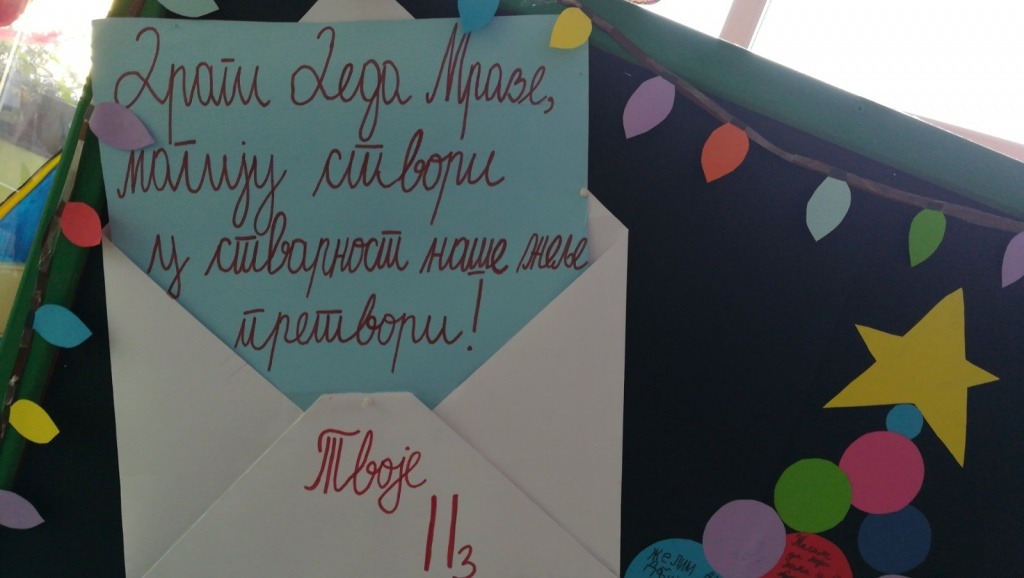 Драги Деда Мразе,
магију створи
у стварност наше жеље
претвори!
Твоје
II3
желим